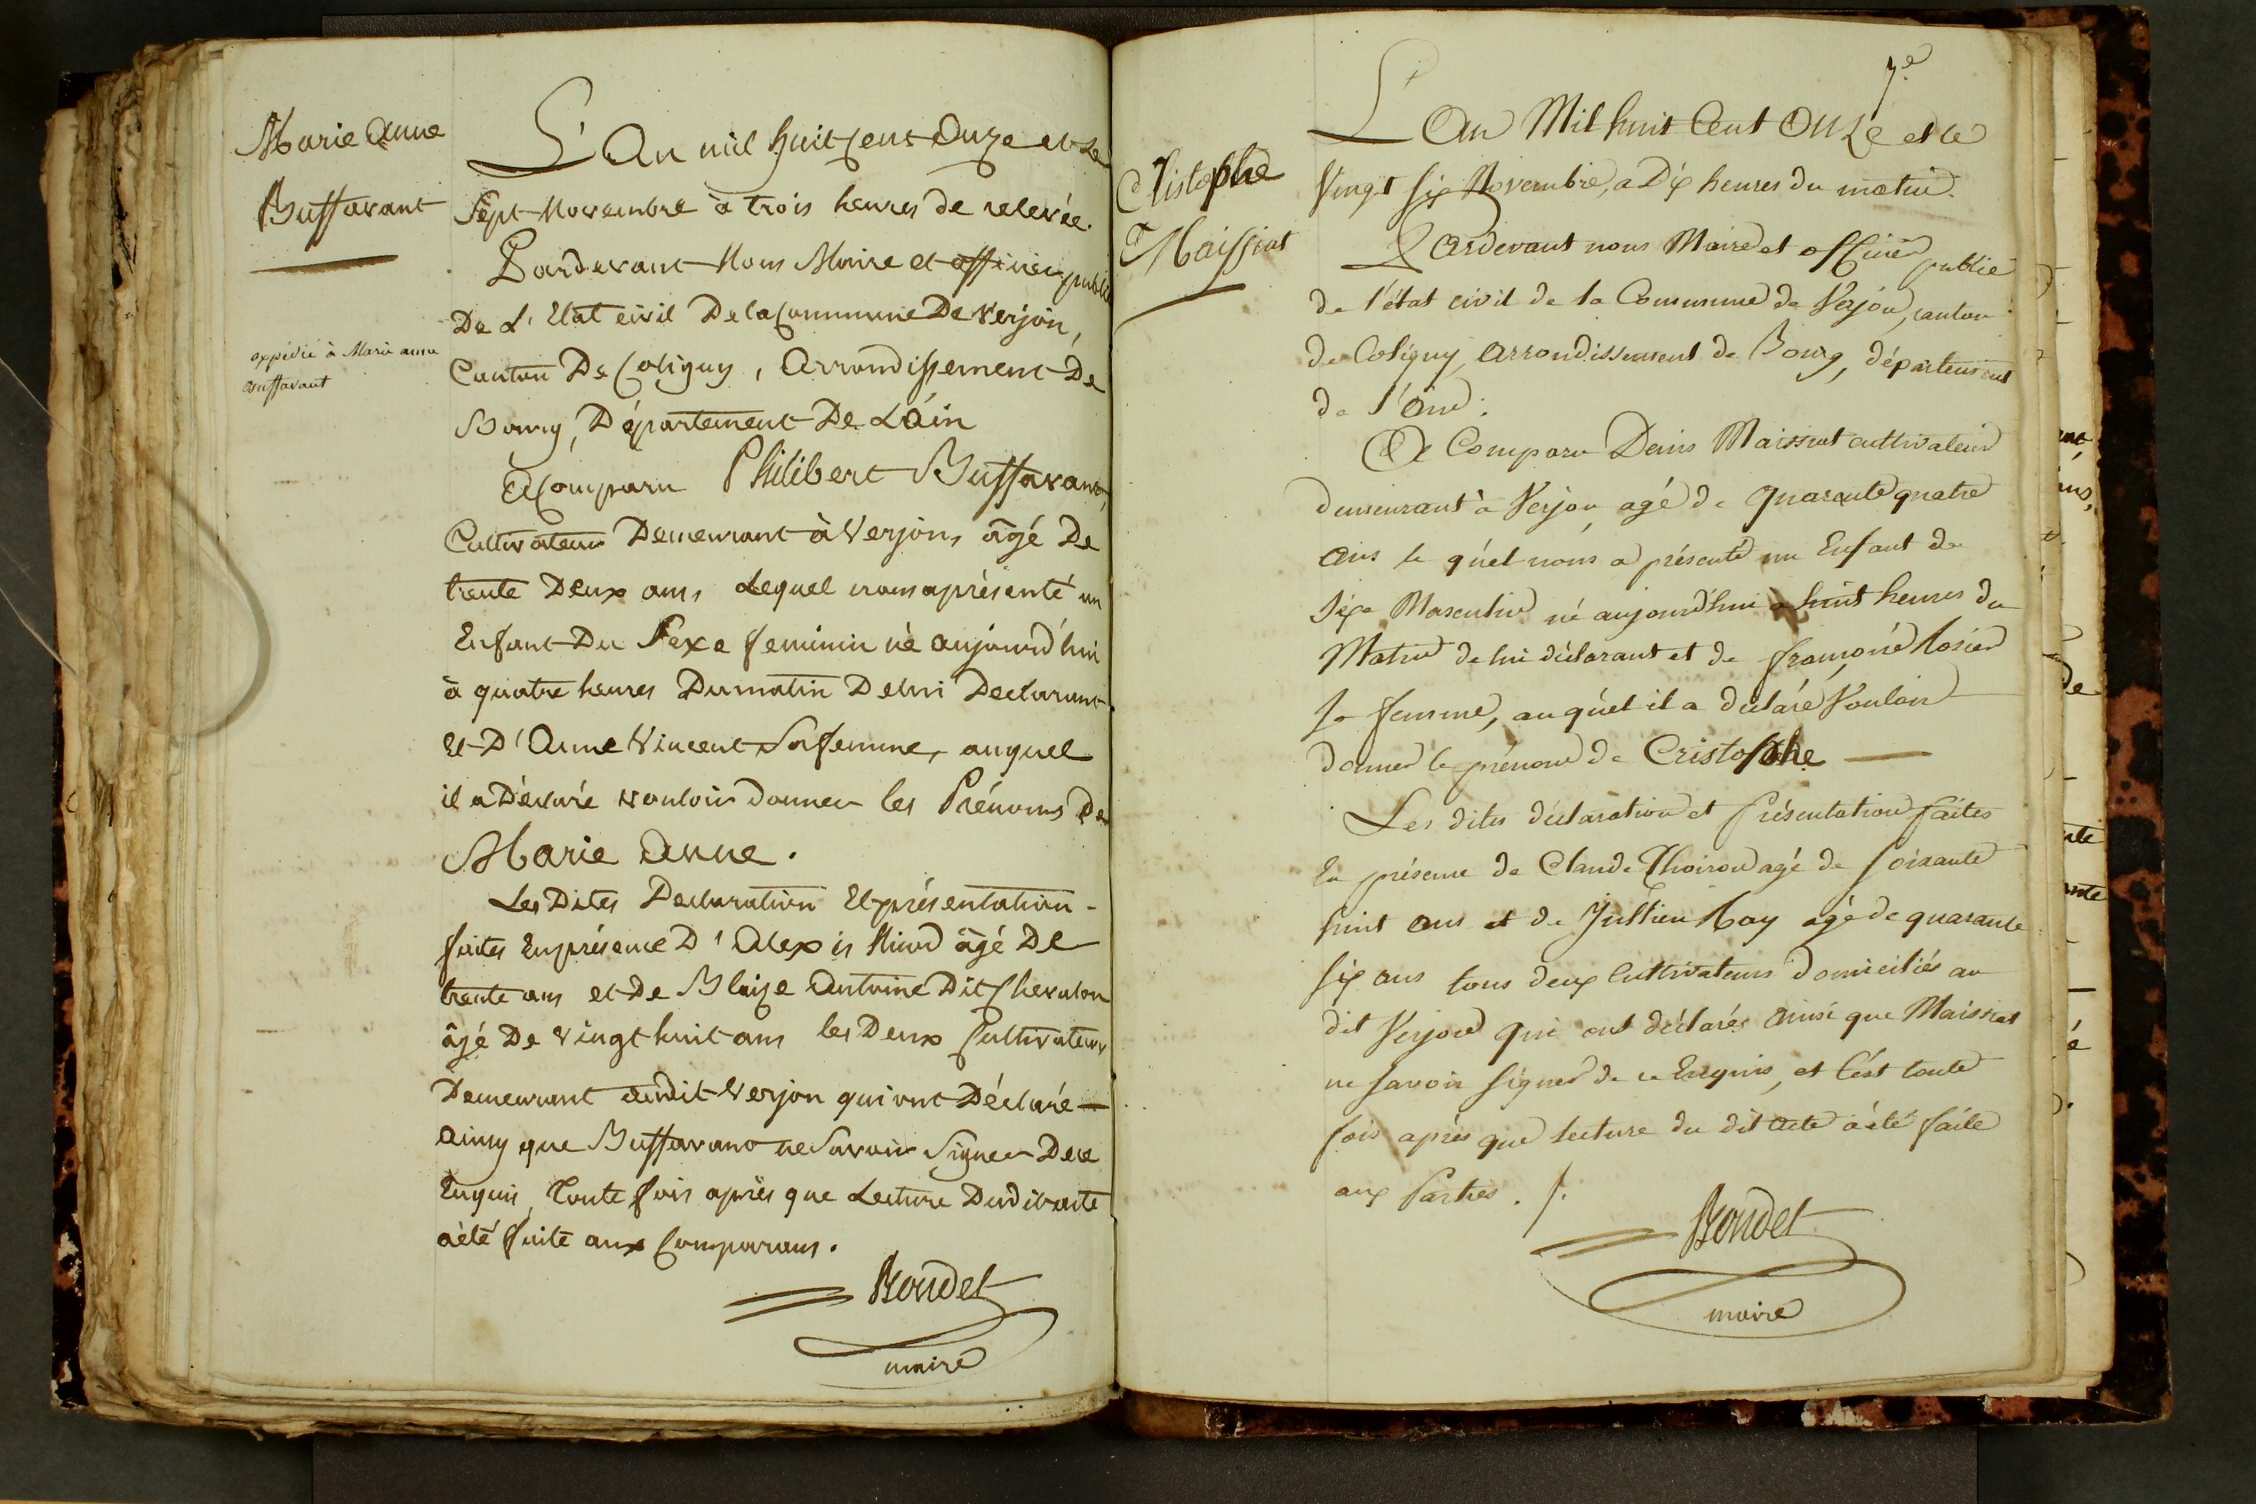 Marie Anne
Buffavant
expédié à Marie anne
Buffavant
L'An mil huit Cent Onze et Le
Sept Novembre à trois heures de relevée.
Pardevant Nous Maire et officier public
De L'Etat civil De la Commune De Verjon,
Canton De Coligny, Arrondissement De
Bourg, Département De L'Ain
A Comparu Philibert Buffavant,
Cultivateur Demeurant à Verjon, âgé De
trente Deux ans, Lequel nous a présenté un
Enfant Du Sexe feminin né aujourd'hui
à quatre heures Du matin De lui Declarant
Et D'Anne Vincent Sa femme, auquel
il a Déclaré vouloir donner les Prénoms De
Marie Anne.
Les Dites Declaration Et présentation
faites En présence D'Alexis âgé De
trente ans et De Blaize Antoine Dit Chevalon
âgé De Vingt huit ans les Deux Cultivateurs
Demeurant audit Verjon qui ont Déclaré
Ainsy que Buffavant ne Savoir Signer De ce
Enquis, Toute fois après que Lecture Dudit acte
a été faite aux Comparans.
Bondet
maire
7e
Cristophe
Maissiat
L'An Mil huit Cent Onze et le
Vingt six Novembre, a Dix heures du matin.
Pardevant nous Maire et officier public
de l'état civil de la Commune de Verjon, canton
de Coligny, Arrondissement de Bourg, département
de l'Ain.
A Comparu Denis Maissiat cultivateur
demeurant à Verjon, agé de quarante quatre
ans le quel nous a présenté un Enfant de
Sexe Masculin né aujourd'hui a huit heures du
Matin de lui déclarant et de françoise
sa femme, auquel il a déclaré Vouloir
donner le prénom de Cristophe
Les dites déclaration et Présentation faites
En présence de Claude Thoiron agé de soixante
huit ans et de Jullien agé de quarante
six ans tous deux Cultivateurs domiciliés au
dit Verjon qui ont déclarés ainsi que Maissiat
ne savoir signer de ce Enquis, et C'est toute
fois après que lecture du dit acte a été faite
aux Parties. /.
Bondet
maire